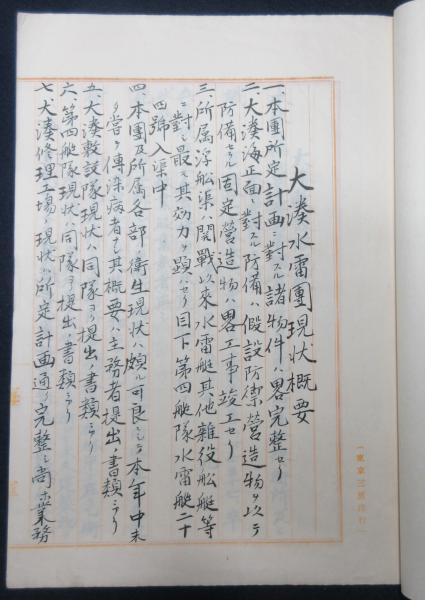 大湊水雷團現状概要
一、本團所定ノ計画ニ對スル諸物件ハ畧完整セリ
二、大湊海正面ニ對スル防備ハ假設防禦営造物ヲ以テ
防備セル固定營造物ハ畧工事竣工セリ
三、所属浮船渠ハ開戰以來水雷艇其他雜役船艇等
ニ對シ最モ其効力ヲ顕ハセリ目下第四艇隊水雷艇二十
四號入渠中
四、本團及所属各部衛生現状ハ頗ル可良ニシテ本年中未
タ嘗テ傳染病者ナ其概要ハ主務者提出ノ書類ニアリ
五、大湊敷設隊現状ハ同隊ヨリ提出ノ書類ニアリ
六、第四艇隊現状ハ同隊ヨリ提出ノ書類ニアリ
七、大湊修理工場ノ現状ハ所定ノ計画通リ完整シ尚ホ業務